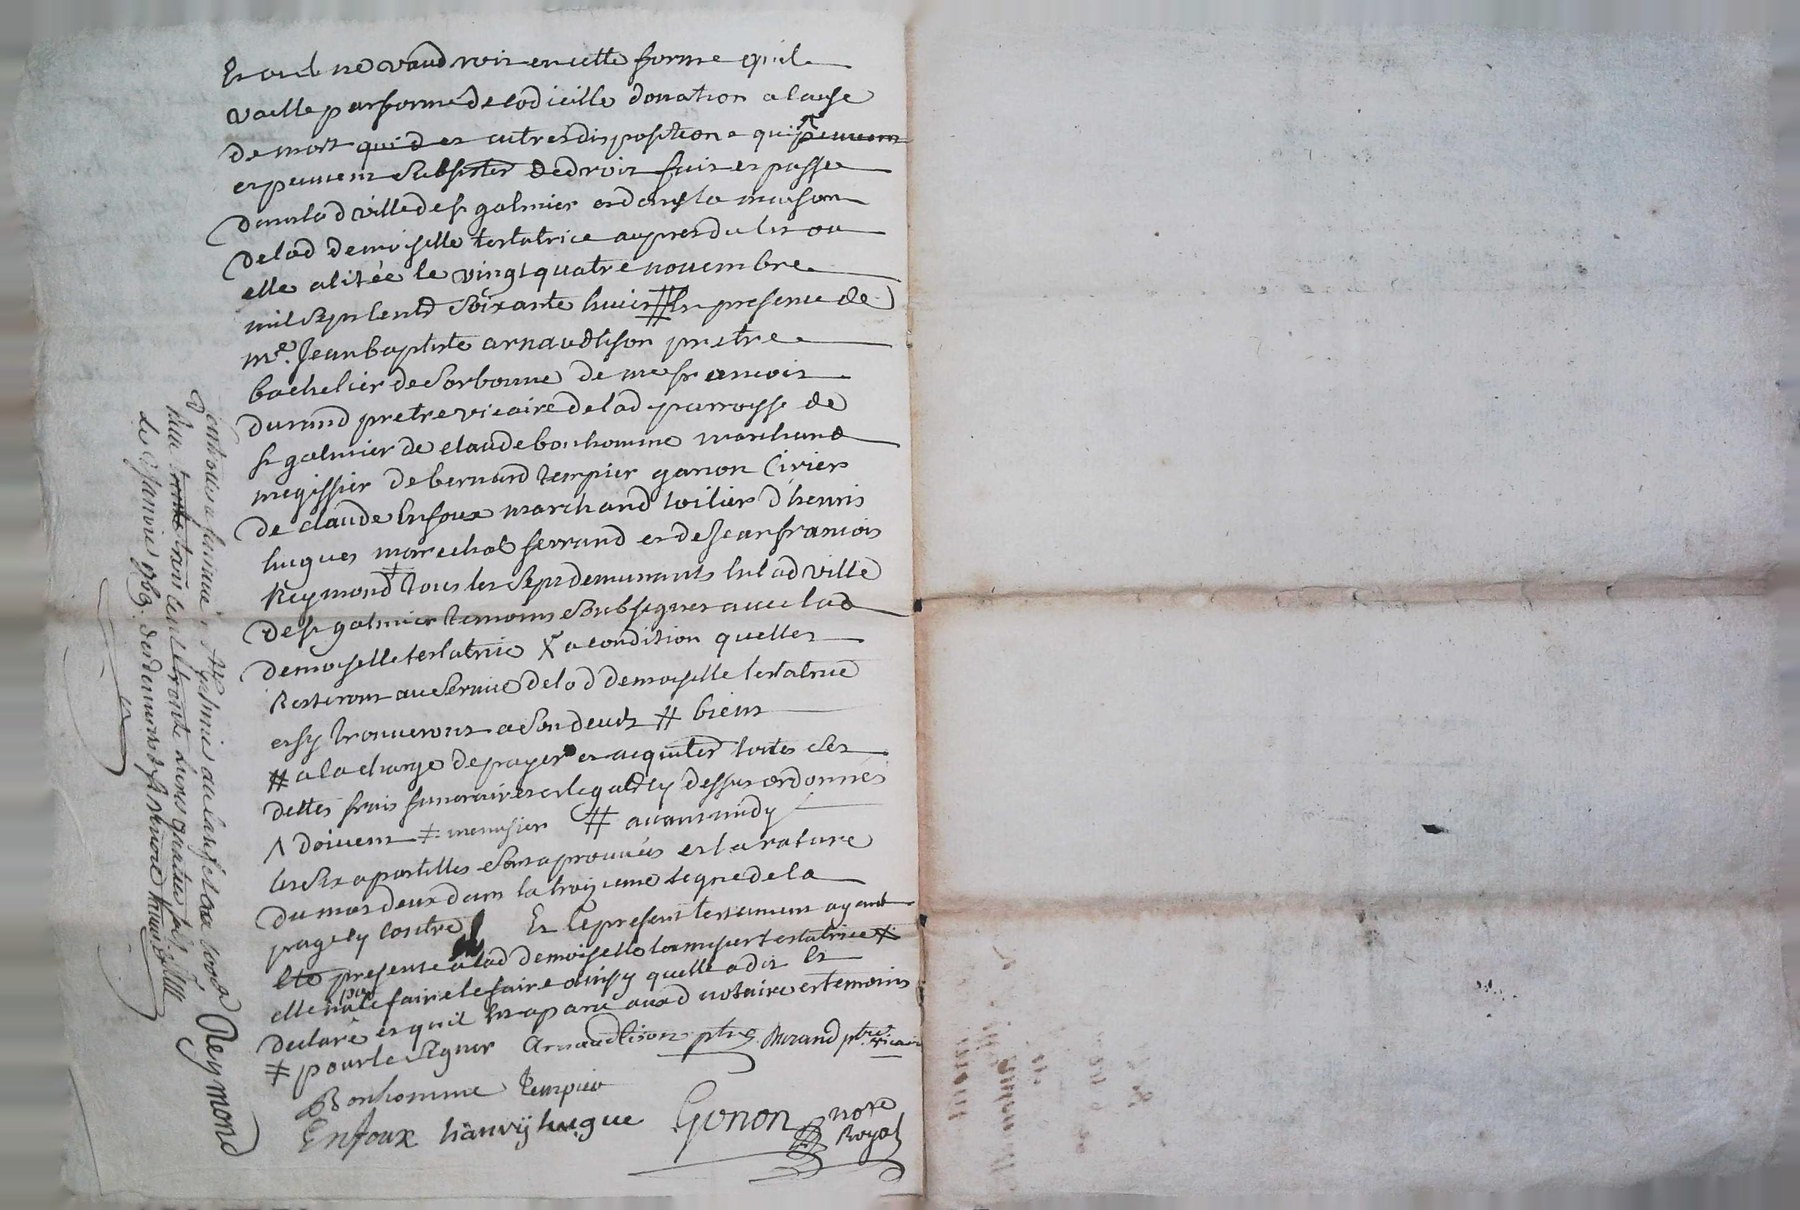 Et ou il ne vaudroit en cette forme qu'il
vaille par forme de codicille donation a cause
de mort qui des autres dispositions qui ^ peuvent
et peuvent subsister de droit fait et passé
dans lad ville de st galmier et dans la maison
de lad demoiselle testatrice aupres du lit ou
elle alitée le vingt quatre novembre
mil sept cents soixante huit # En presence de
me. Jean baptiste arnaudtison pretre
bachelier de Sorbonne de me francois
durand pretre vicaire de lad parroysse de
st galmier de claude bonhomme marchand
megissier de bernard tempier garcon Cirier
de claude Enfoux marchand toilier d'henris
hugues marechal ferrand et de Jean francois
Reymond ‡ tous les sept demeurants En lad ville
de st galmier temoins soubsignes avec lad
demoiselle testatrice X a condition quelles
Resteront au service de lad demoiselle testatrice
et sy trouveront a son deuds # biens
# a la charge de payer et acquiter toutes ses
dettes frais funeraires et legats cy dessus ordonnés
^ doivent ‡ menusier # avant midy
les six apostilles sont aprouvées et la rature
du mot deux dans la troizieme ligne de la
page cy contre Et le present testament ayant
eté presenté a lad demoiselle testatrice #
elle na pas le faire le faire ainsy quelle a dit Et
declaré et qu'il Est aparu aud notaire et temoins
# pour le signer Arnaudtison ptre Durand ptre vicaire
Bonhomme Tempier
Enfoux hanrÿ hugue Gonon nore
Royal
Reymond
Controllé a st galmier
trente livres quatre s
Le Janvier 1769.